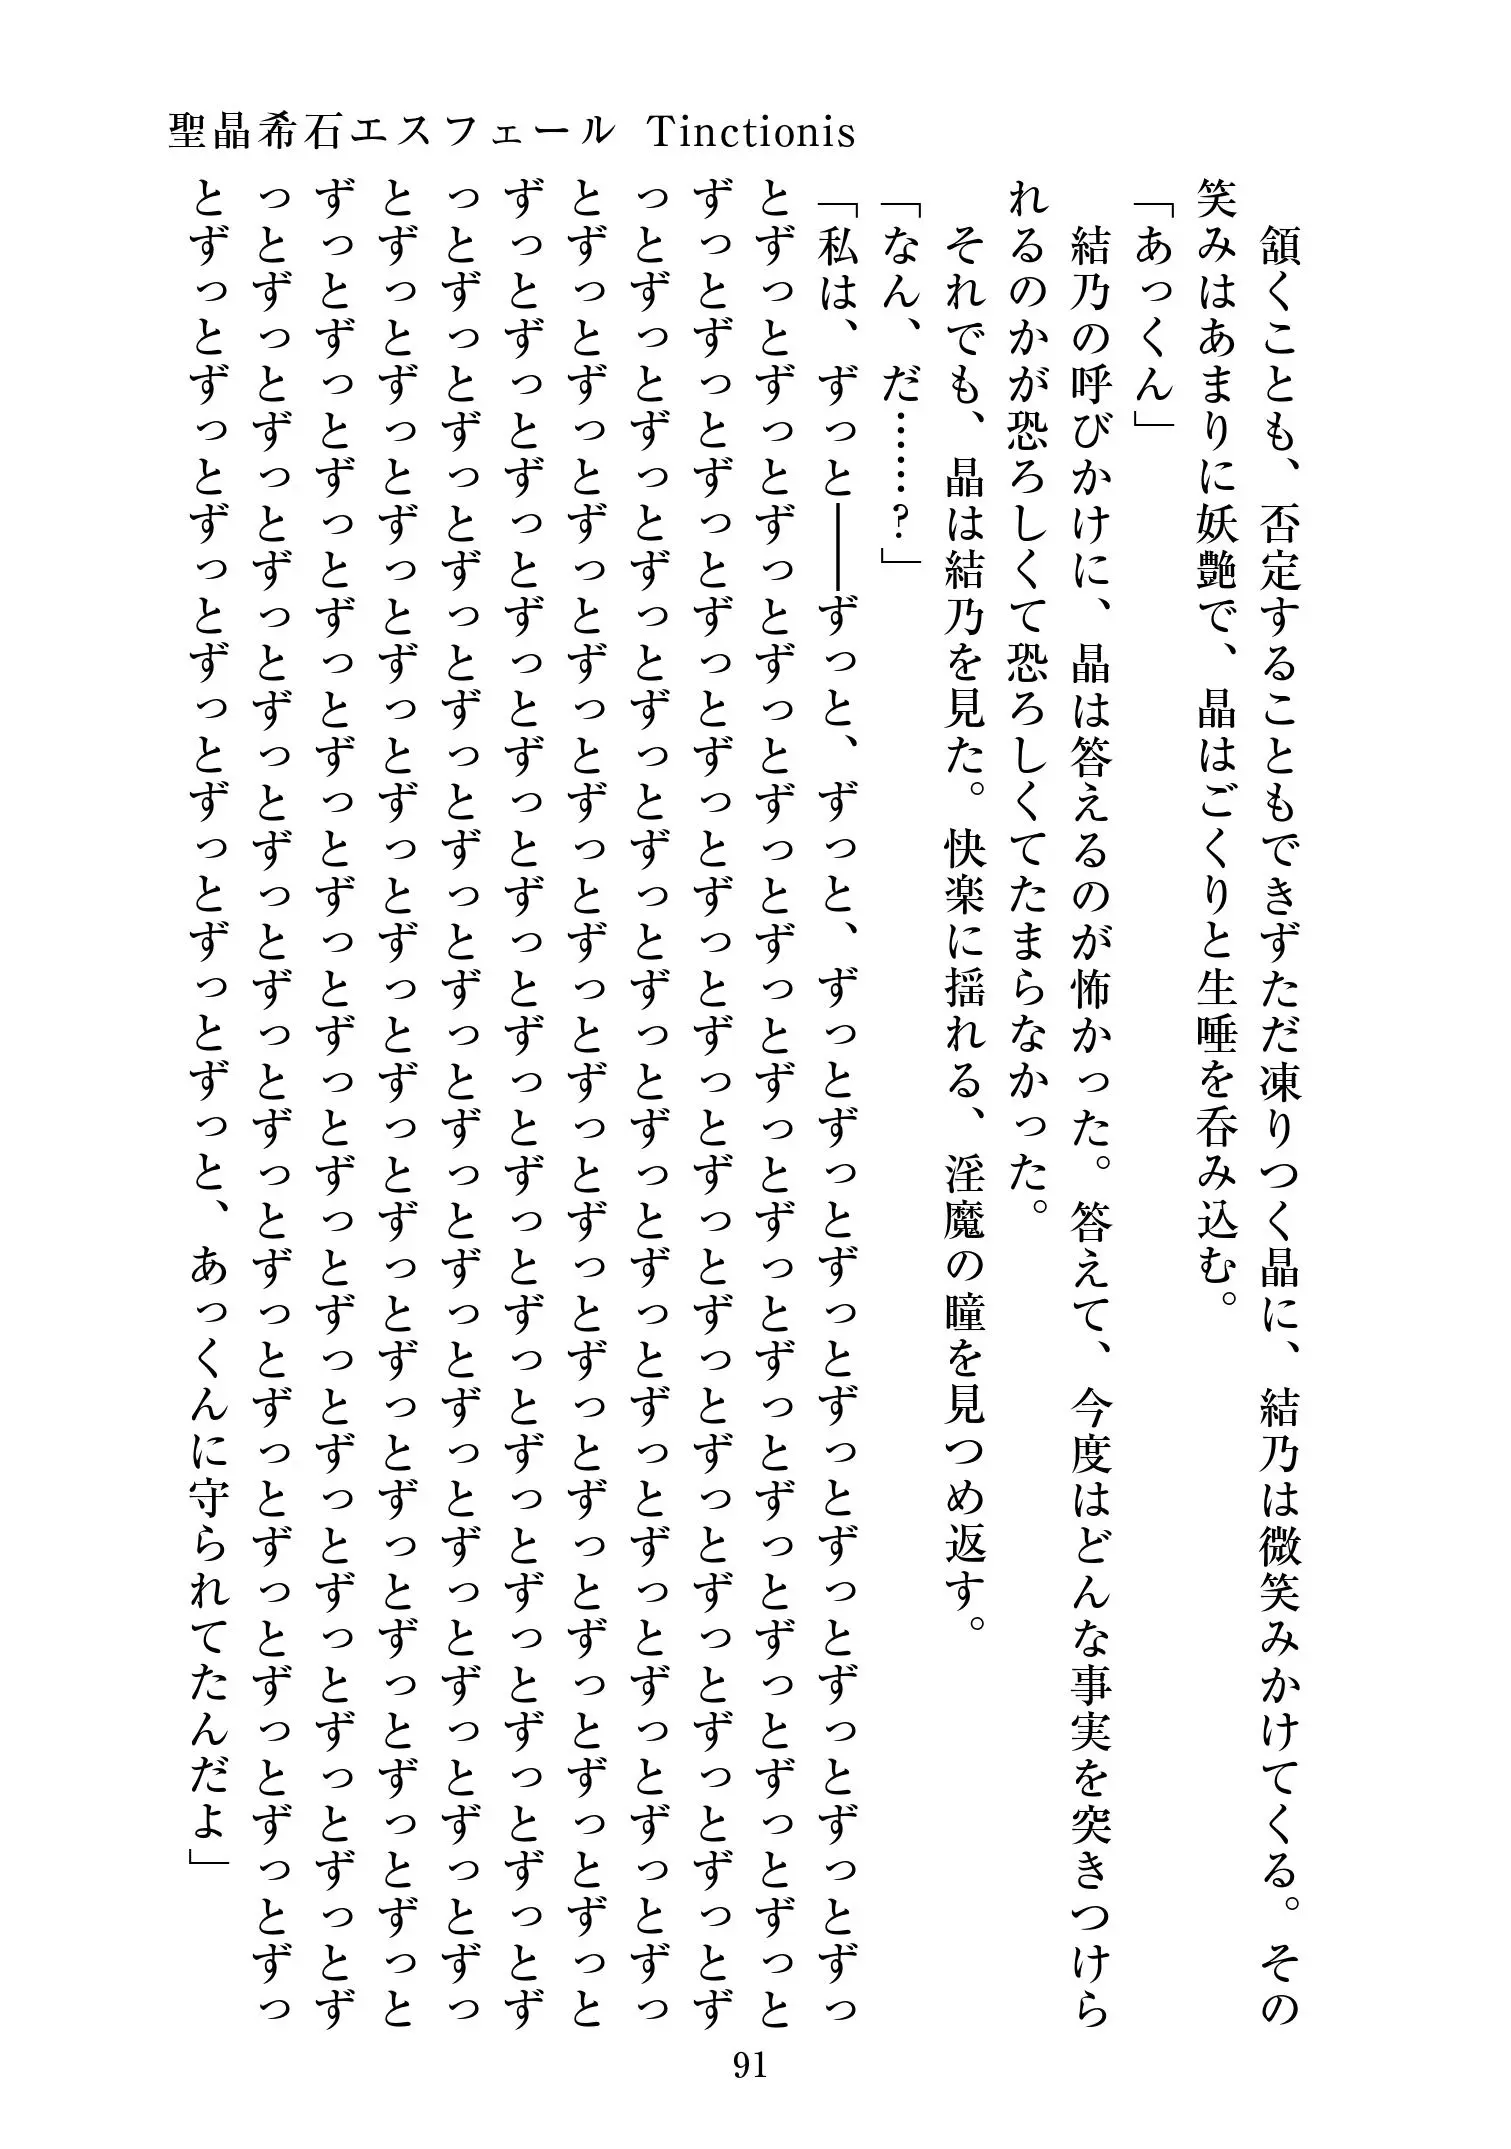 聖晶希石エスフェール Tinctionis
　頷くことも、否定することもできずただ凍りつく晶に、結乃は微笑みかけてくる。その
笑みはあまりに妖艶で、晶はごくりと生唾を呑み込む。
「あっくん」
　結乃の呼びかけに、晶は答えるのが怖かった。答えて、今度はどんな事実を突きつけら
れるのかが恐ろしくて恐ろしくてたまらなかった。
　それでも、晶は結乃を見た。快楽に揺れる、淫魔の瞳を見つめ返す。
「なん、だ……?」
「私は、ずっと――ずっと、ずっと、ずっとずっとずっとずっとずっとずっとずっとずっ
とずっとずっとずっとずっとずっとずっとずっとずっとずっとずっとずっとずっとずっと
ずっとずっとずっとずっとずっとずっとずっとずっとずっとずっとずっとずっとずっとず
っとずっとずっとずっとずっとずっとずっとずっとずっとずっとずっとずっとずっとずっ
とずっとずっとずっとずっとずっとずっとずっとずっとずっとずっとずっとずっとずっと
ずっとずっとずっとずっとずっとずっとずっとずっとずっとずっとずっとずっとずっとず
っとずっとずっとずっとずっとずっとずっとずっとずっとずっとずっとずっとずっとずっ
とずっとずっとずっとずっとずっとずっとずっとずっとずっとずっとずっとずっとずっと
ずっとずっとずっとずっとずっとずっとずっとずっとずっとずっとずっとずっとずっとず
っとずっとずっとずっとずっとずっとずっとずっとずっとずっとずっとずっとずっとずっ
とずっとずっとずっとずっとずっとずっとずっと、あっくんに守られてたんだよ」
91